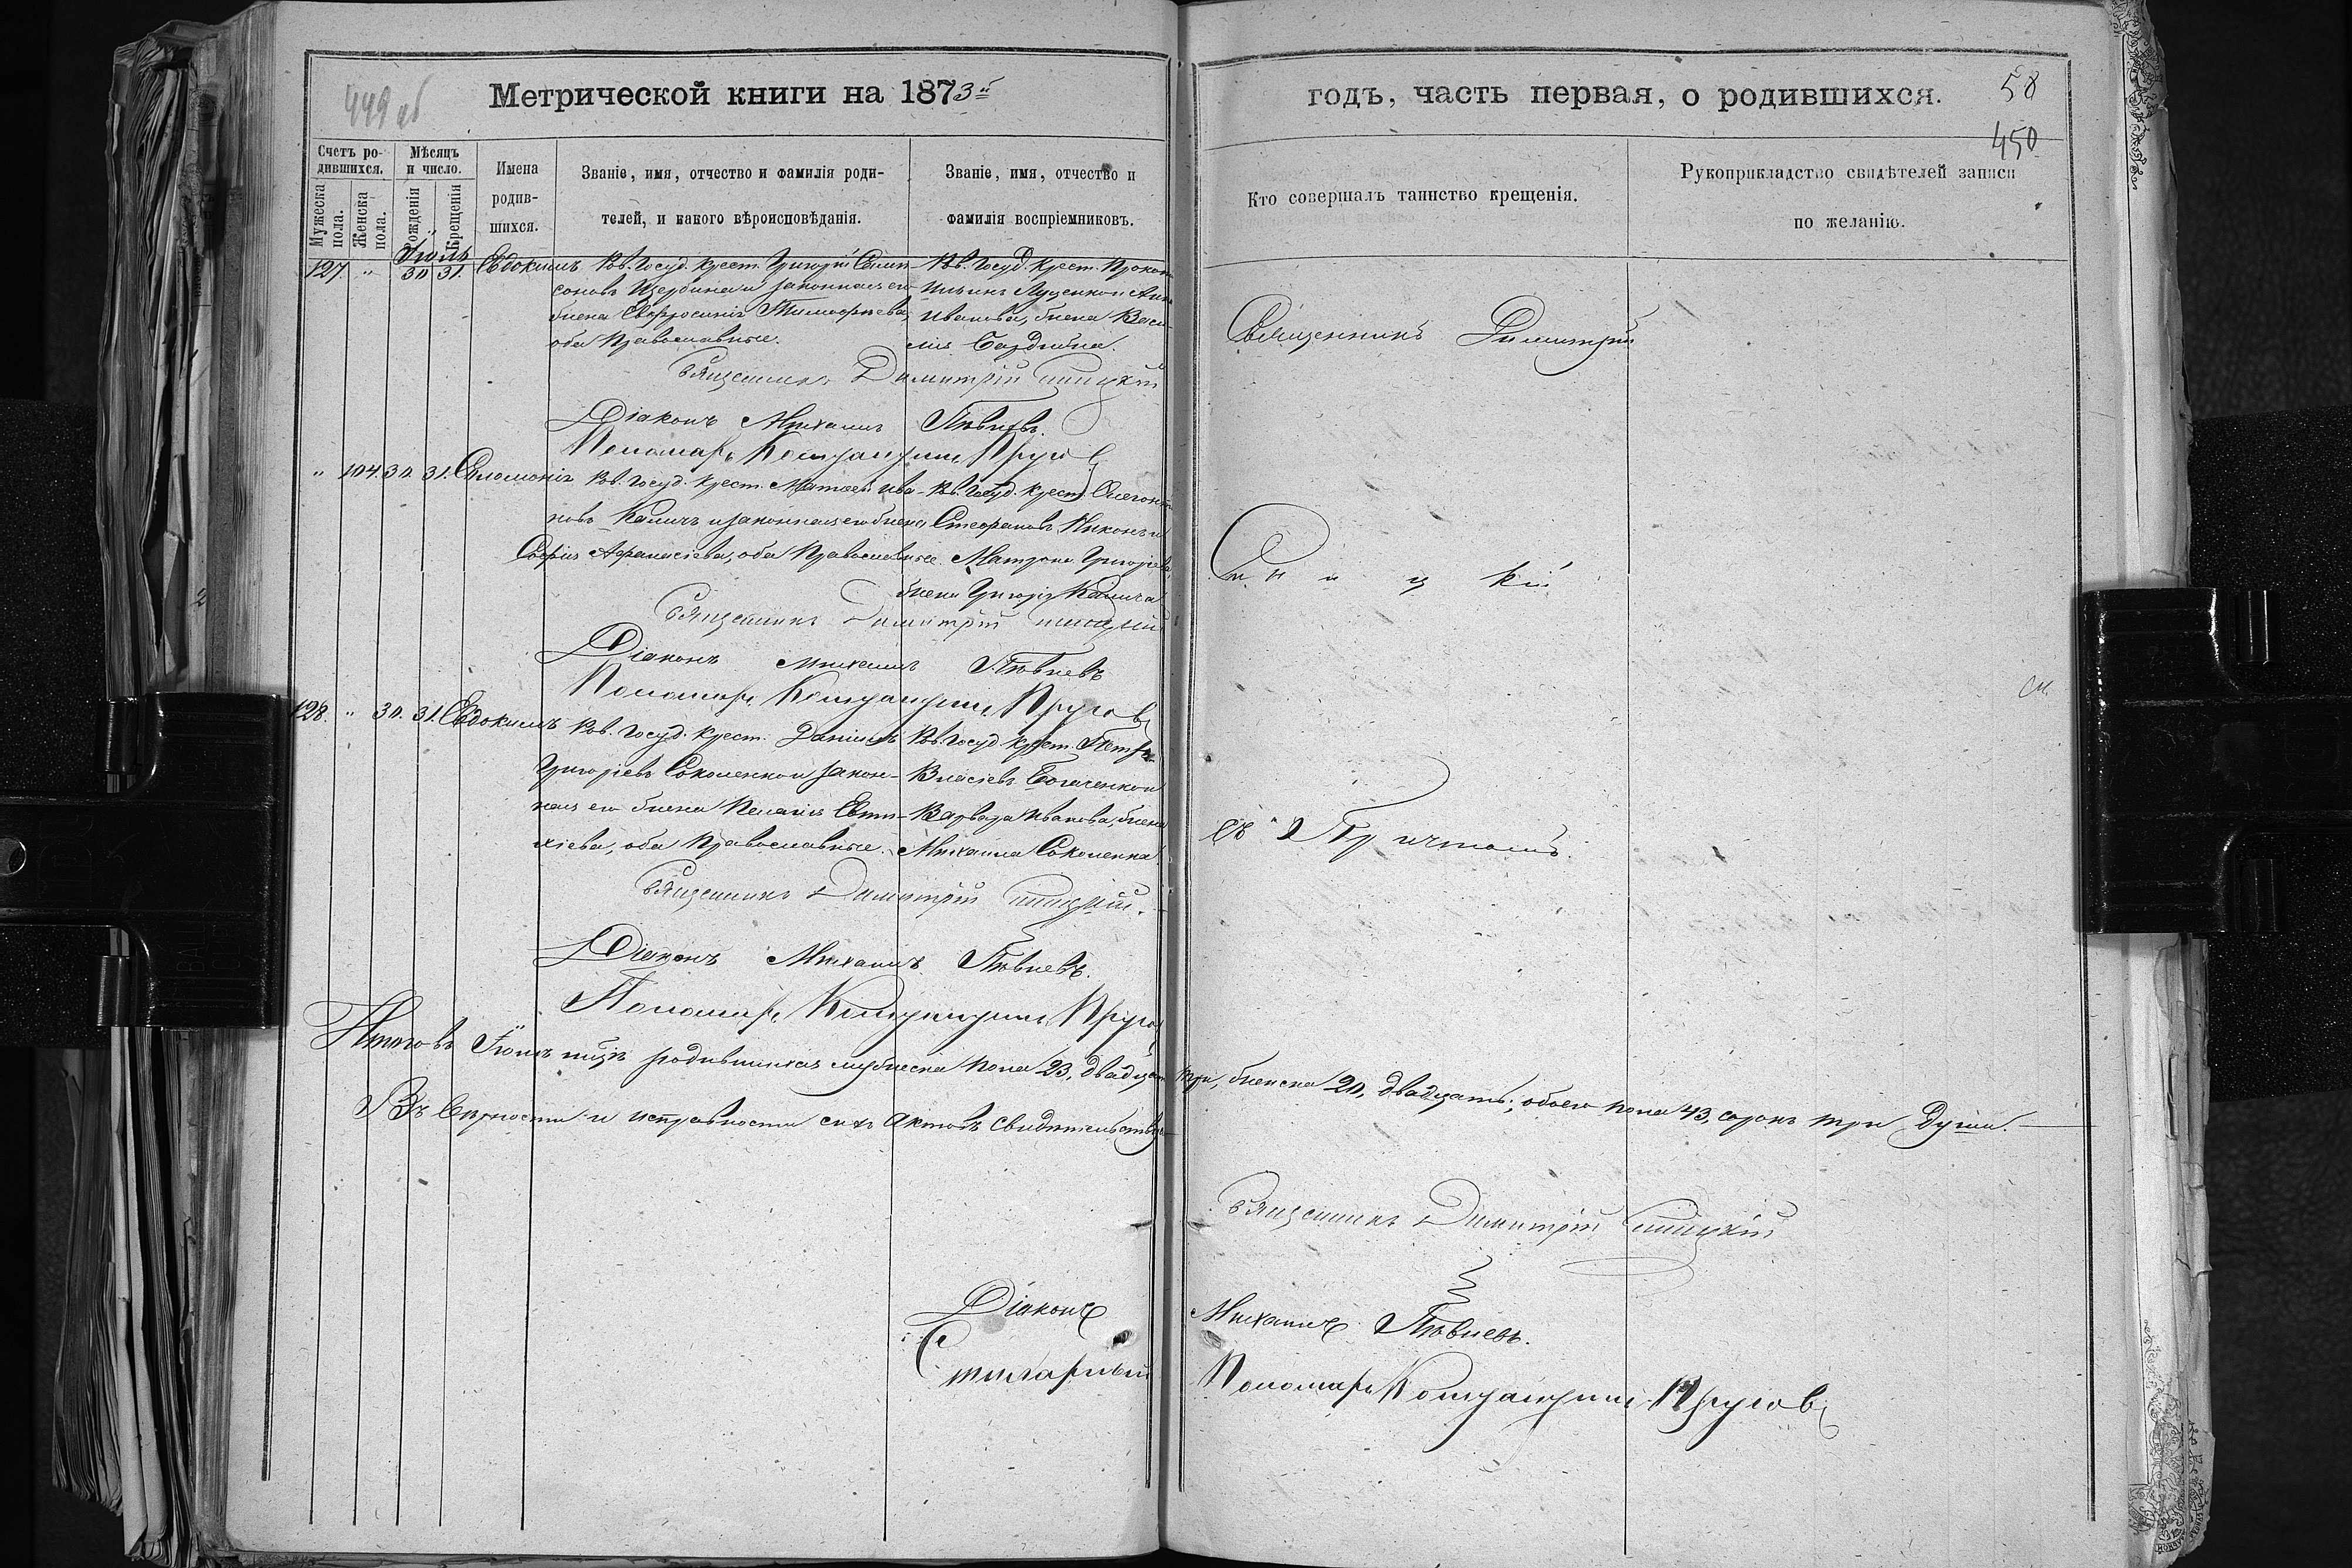 449 об
Метрической книги на 1873й
годъ, часть первая, о родившихся.
58
450
Счетъ родившихся.
Мужеска пола.
Женска пола.
Мѣсяцъ и число.
Рожденія
Крещенія
Имена родившихся.
Званіе, имя, отчество и фамилія роди-
телей, и какого вѣроисповѣданія.
Званіе, имя, отчество и
фамилія воспріемниковъ.
Кто совершалъ таинство крещенія.
Рукоприкладство свидѣтелей записи
по желанію.
Іюль
127. " 30 31. Евдокимъ
Гов. Госуд. Крест. Григорій Самп-
соновъ Щербина и законная его
жена Евфросинія Тимофѣева,
оба Православные.
Гов. Госуд. Крест. Прокоп
Ильинъ Луценко и Анна
Иванова, жена Васи-
лія
Священникъ Димитрій Спицкій
Діаконъ Михаилъ Пѣвневъ.
Пономарь Кондратъ Круговъ
" 104. 30. 31. Соломонія
Гов. Госуд. Крест. Матѳей Ива-
новъ Калычъ и законная его жена
Софія Афанасіева, оба Православные.
Гов. Госуд. Крест.
Стефановъ Никонъ и
Матрона Григорьева,
жена Григорія Калыча
Священникъ Димитрій Спицкій
Діаконъ Михаилъ Пѣвневъ
Пономарь Круговъ
128. " 30. 31. Евдокимъ
Гов. Госуд. Крест. Даніилъ
Григоріевъ Соколенко и закон-
ная его жена Пелагія Евти-
хіева, оба Православные.
Гов. Госуд. Крест. Петръ
Власіевъ Богаченко и
Варвара Иванова, жена
Михаила Соколенка.
Священникъ Димитрій Спицкій.
Діаконъ Михаилъ Пѣвневъ.
Пономарь Круговъ
Священникъ Димитрій
Спицкій
съ Причтомъ.
Итого въ Іюлѣ мцѣ родившихся мужеска пола 23, двадцать три, женска 20, двадцать; обоего пола 43, сорокъ три души.
Въ вѣрности и исправности сихъ актовъ свидѣтельствуемъ
Священникъ Димитрій Спицкій
Діаконъ Михаилъ Пѣвневъ.
Стихарный Пономарь Круговъ